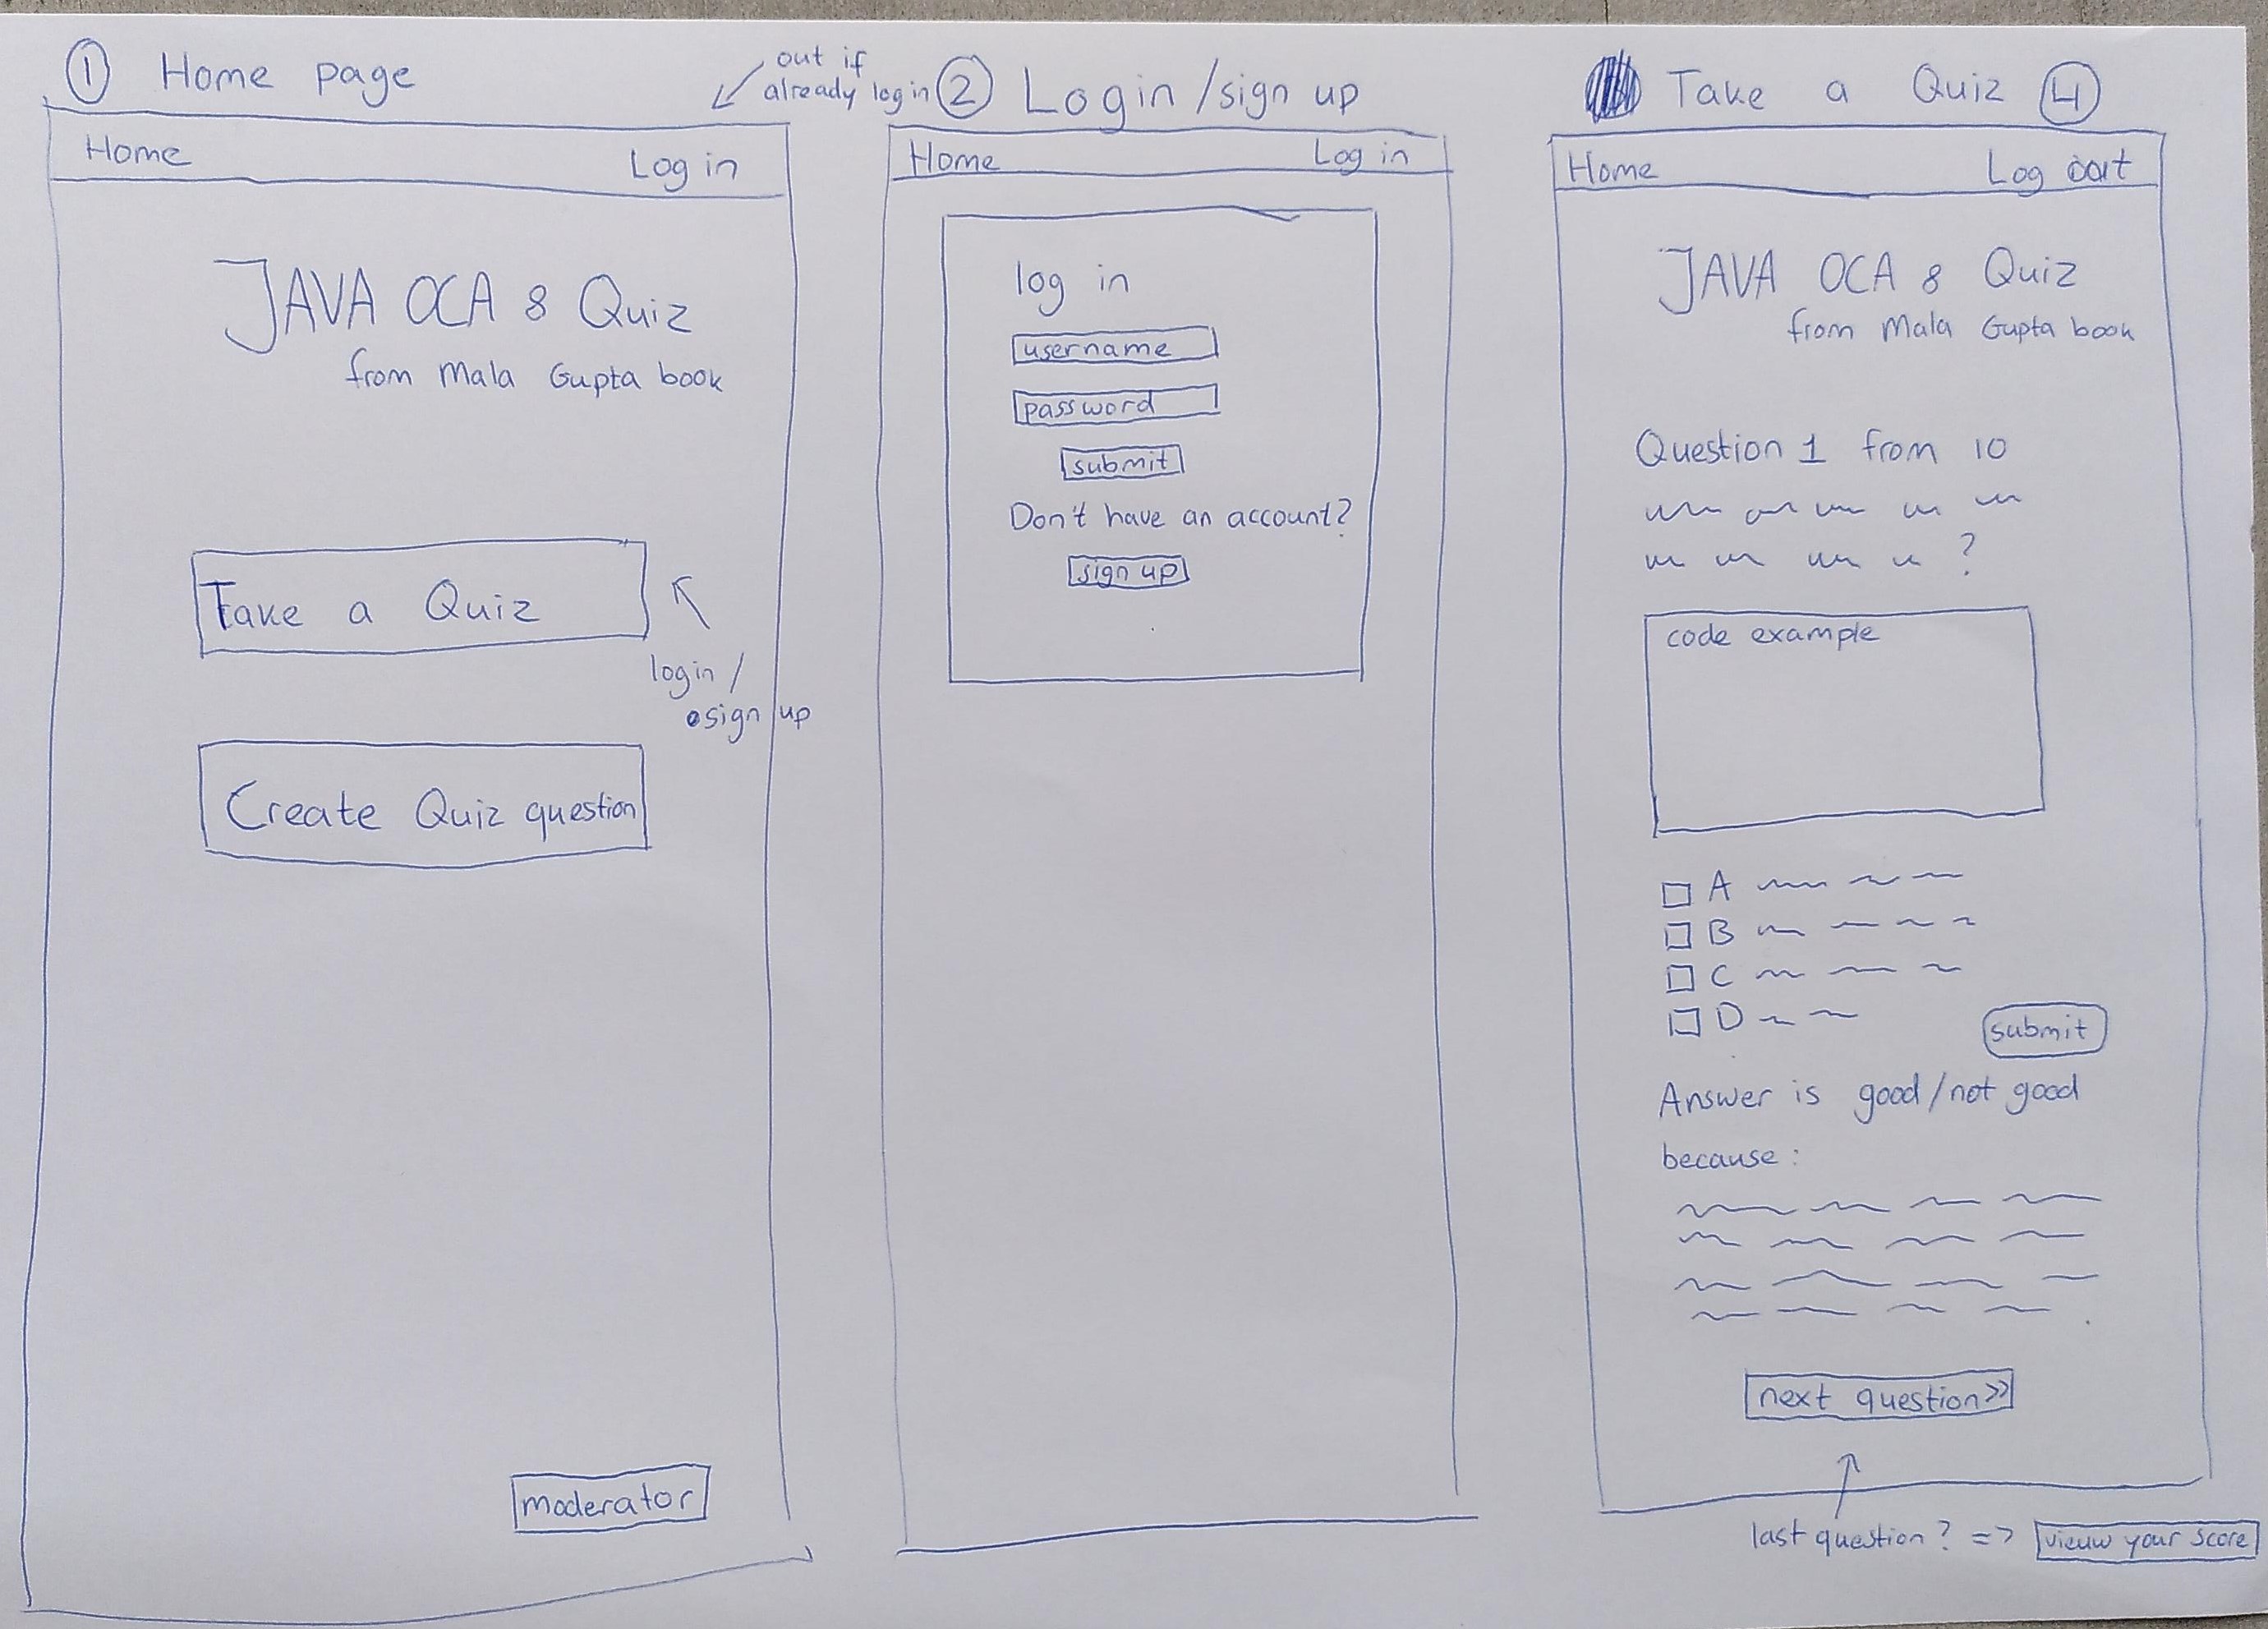 ① Home page
out if
already log in
Home
Log in
JAVA OCA 8 Quiz
from Mala Gupta book
Take a Quiz
login /
sign up
Create Quiz question
moderator
② Login /sign up
Home
Log in
log in
username
password
submit
Don't have an account?
sign up
Take a Quiz ④
Home
Log out
JAVA OCA 8 Quiz
from Mala Gupta book
Question 1 from 10
?
code example
A
B
C
D
submit
Answer is good/not good
because:
next question>>
last question? => vieuw your score